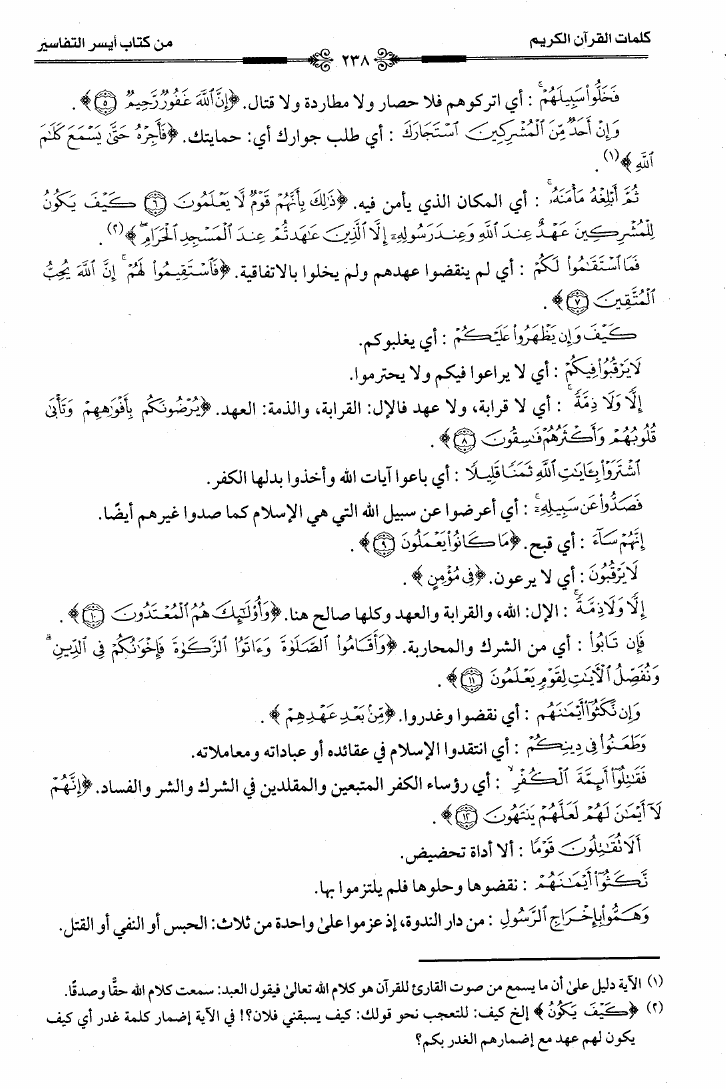 كلمات القرآن الكريم
٢٣٨
من كتاب أيسر التفاسير
فَخَلُّوا۟ سَبِيلَهُمْ ۚ : أي اتركوهم فلا حصار ولا مطاردة ولا قتال. ﴿إِنَّ ٱللَّهَ غَفُورٌ رَّحِيمٌ ۝٥﴾ .
وَإِنْ أَحَدٌ مِّنَ ٱلْمُشْرِكِينَ ٱسْتَجَارَكَ : أي طلب جوارك أي: حمايتك. ﴿فَأَجِرْهُ حَتَّىٰ يَسْمَعَ كَلَٰمَ
ٱللَّهِ﴾(١).
ثُمَّ أَبْلِغْهُ مَأْمَنَهُۥ ۚ : أي المكان الذي يأمن فيه. ﴿ذَٰلِكَ بِأَنَّهُمْ قَوْمٌ لَّا يَعْلَمُونَ ۝٦ كَيْفَ يَكُونُ
لِلْمُشْرِكِينَ عَهْدٌ عِندَ ٱللَّهِ وَعِندَ رَسُولِهِۦٓ إِلَّا ٱلَّذِينَ عَٰهَدتُّمْ عِندَ ٱلْمَسْجِدِ ٱلْحَرَامِ ۖ﴾(٢).
فَمَا ٱسْتَقَٰمُوا۟ لَكُمْ : أي لم ينقضوا عهدهم ولم يخلوا بالاتفاقية. ﴿فَٱسْتَقِيمُوا۟ لَهُمْ ۚ إِنَّ ٱللَّهَ يُحِبُّ
ٱلْمُتَّقِينَ ۝٧﴾ .
كَيْفَ وَإِن يَظْهَرُوا۟ عَلَيْكُمْ : أي يغلبوكم.
لَا يَرْقُبُوا۟ فِيكُمْ : أي لا يراعوا فيكم ولا يحترموا.
إِلًّا وَلَا ذِمَّةً ۚ : أي لا قرابة، ولا عهد فالإل: القرابة، والذمة: العهد. ﴿يُرْضُونَكُم بِأَفْوَٰهِهِمْ وَتَأْبَىٰ
قُلُوبُهُمْ وَأَكْثَرُهُمْ فَٰسِقُونَ ۝٨﴾ .
ٱشْتَرَوْا۟ بِـَٔايَٰتِ ٱللَّهِ ثَمَنًا قَلِيلًا : أي باعوا آيات الله وأخذوا بدلها الكفر.
فَصَدُّوا۟ عَن سَبِيلِهِۦٓ ۚ : أي أعرضوا عن سبيل الله التي هي الإسلام كما صدوا غيرهم أيضًا.
إِنَّهُمْ سَآءَ : أي قبح. ﴿مَا كَانُوا۟ يَعْمَلُونَ ۝٩﴾ .
لَا يَرْقُبُونَ : أي لا يرعون. ﴿فِى مُؤْمِنٍ﴾ .
إِلًّا وَلَا ذِمَّةً ۚ : الإل: الله، والقرابة والعهد وكلها صالح هنا. ﴿وَأُو۟لَٰٓئِكَ هُمُ ٱلْمُعْتَدُونَ ۝١٠﴾ .
فَإِن تَابُوا۟ : أي من الشرك والمحاربة. ﴿وَأَقَامُوا۟ ٱلصَّلَوٰةَ وَءَاتَوُا۟ ٱلزَّكَوٰةَ فَإِخْوَٰنُكُمْ فِى ٱلدِّينِ ۗ
وَنُفَصِّلُ ٱلْـَٔايَٰتِ لِقَوْمٍ يَعْلَمُونَ ۝١١﴾ .
وَإِن نَّكَثُوٓا۟ أَيْمَٰنَهُم : أي نقضوا وغدروا. ﴿مِّنۢ بَعْدِ عَهْدِهِمْ﴾ .
وَطَعَنُوا۟ فِى دِينِكُمْ : أي انتقدوا الإسلام في عقائده أو عباداته ومعاملاته.
فَقَٰتِلُوٓا۟ أَئِمَّةَ ٱلْكُفْرِ ۙ : أي رؤساء الكفر المتبعين والمقلدين في الشرك والشر والفساد. ﴿إِنَّهُمْ
لَآ أَيْمَٰنَ لَهُمْ لَعَلَّهُمْ يَنتَهُونَ ۝١٢﴾ .
أَلَا تُقَٰتِلُونَ قَوْمًا : ألا أداة تحضيض.
نَّكَثُوٓا۟ أَيْمَٰنَهُمْ : نقضوها وحلوها فلم يلتزموا بها.
وَهَمُّوا۟ بِإِخْرَاجِ ٱلرَّسُولِ : من دار الندوة، إذ عزموا على واحدة من ثلاث: الحبس أو النفي أو القتل.
(١) الآية دليل على أن ما يسمع من صوت القارئ للقرآن هو كلام الله تعالى فيقول العبد: سمعت كلام الله حقًّا وصدقًا.
(٢) ﴿كَيْفَ يَكُونُ﴾ إلخ كيف: للتعجب نحو قولك: كيف يسبقني فلان؟! في الآية إضمار كلمة غدر أي كيف
يكون لهم عهد مع إضمارهم الغدر بكم؟